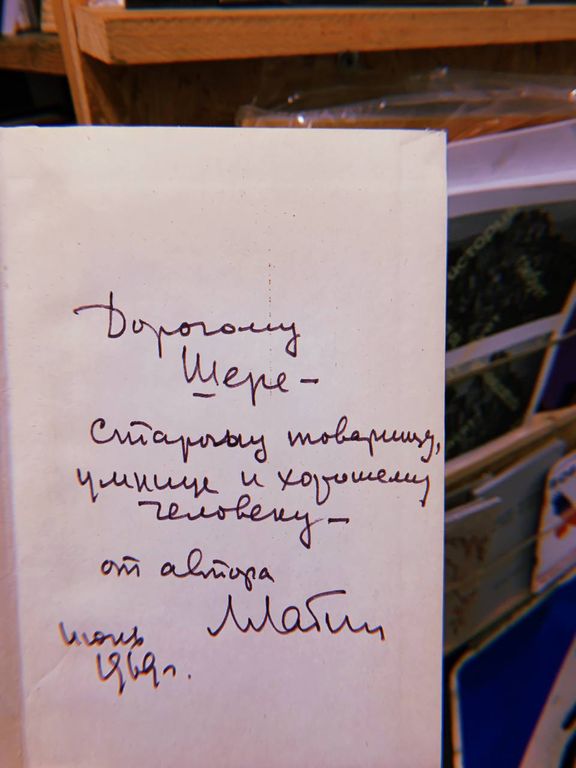 Дорогому
Шере –
старому товарищу,
умнице и хорошему
человеку –
от автора
1969 г.